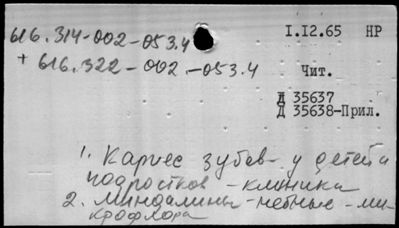 616.314-002-053.4
+ 616.322-002-053.4
1.12.65 НР
Чит.
Д 35637
Д 35638-Прил.
1. Кариес зубов - у детей и
подростков - клиника
2. Миндалины - небные - ми-
крофлора